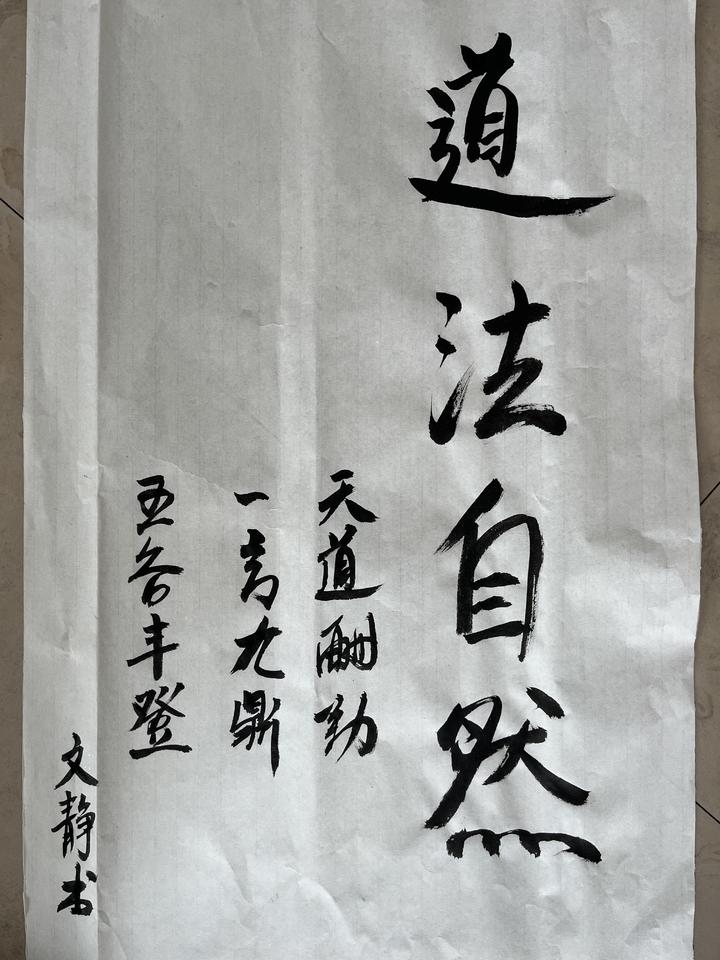 道法自然
天道酬勤
一言九鼎
五谷丰登
文静书